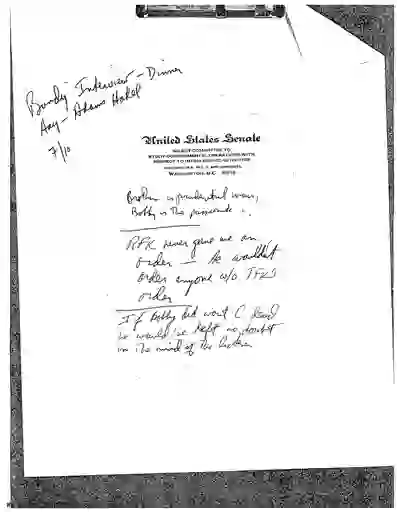 Bundy Interview - Dinner
Hay - Adams Hotel
7/10
United States Senate
SELECT COMMITTEE TO
STUDY GOVERNMENTAL OPERATIONS WITH
RESPECT TO INTELLIGENCE ACTIVITIES
WASHINGTON, D.C. 20510
Brother is prudential man,
Bobby is the passionate
RFK never gave me an
order — he wouldn't
order anyone w/o JFK's
order
If Bobby did want C dead
he would've left no doubt
in the mind of the